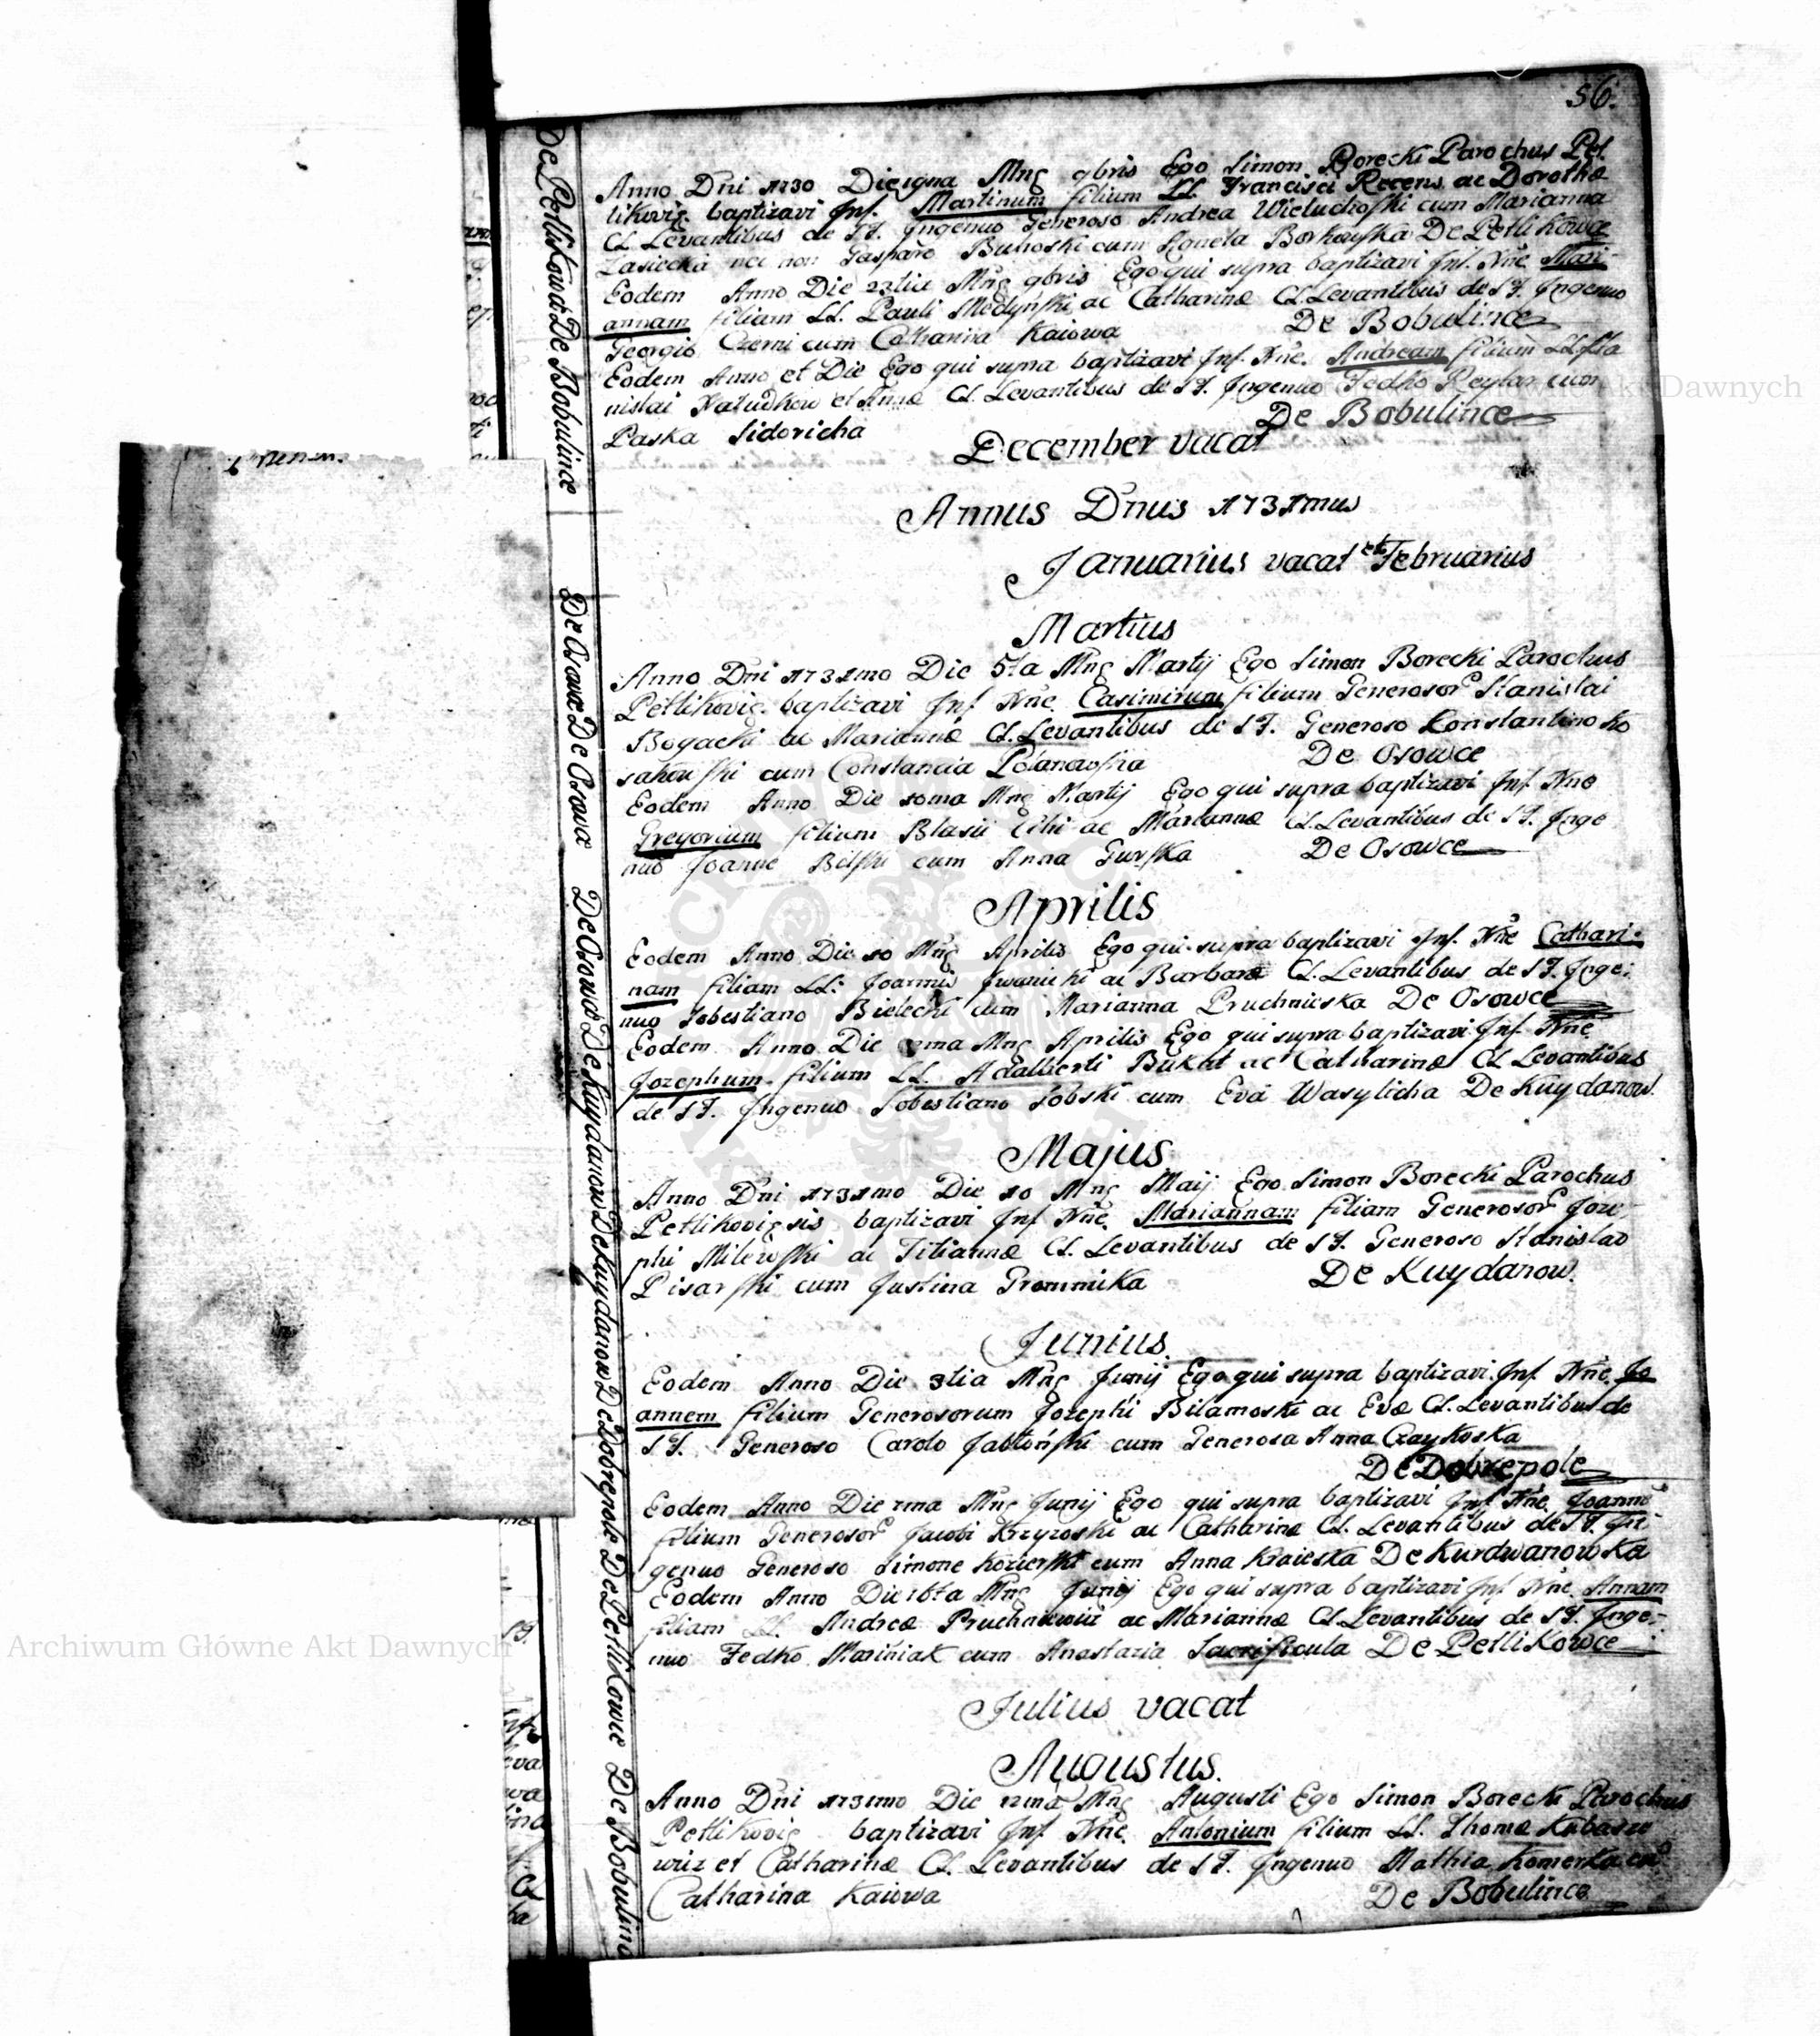 56.
Anno Dni 1730 Die 19na Mng 9bris Ego Simon Borecki Parochus Pet
likovig. baptizavi Inf. Martinum filium LL. Francisci Recens ac Dorothæ
CL Levantibus de S F. Ingenuo Generoso Andrea Wieluchoski cum Marianna
Zasiecka nec non Gasparo Buhoski cum Agneta Borkowska De Petlikowce
Eodem Anno Die 23tia Mng 9bris Ego qui supra baptizavi Inf. Nñe Mari-
annam filiam LL. Pauli Medynski ac Catharinæ CL. Levantibus de S F. Ingenuo
Georgio Czerni cum Catharina Kaiowa De Bobulince
Eodem Anno et Die Ego qui supra baptizavi Inf. Nñe. Andream filium LL. Sta
nislai et Annæ CL Levantibus de S F. Ingenuo Fedko Reylar cum
Paska Sidoricha De Bobulince
December vacat
Annus Dnus 1731mus
Januarius vacat et Februarius
Martius
Anno Dni 1731mo Die 5ta Mng Martij Ego Simon Borecki Parochus
Petlikovig. baptizavi Inf Nñe. Casimirum filium Generosor Stanislai
Bogacki ac Mariannæ CL. Levantibus de S F. Generoso Konstantino Ko
sakowski cum Constancia Polanowska De Osowce
Eodem Anno Die 10ma Mng Martij Ego qui supra baptizavi Inf Nñe
Gregorium filium Blasii ac Mariannæ CL. Levantibus de S F. Inge
nuo Joanne Bilski cum Anna Gurska De Osowce
Aprilis
Eodem Anno Die 10 Mng Aprilis Ego qui supra baptizavi Inf. Nñe Cathari-
nam filiam LL: Joannis Iwanicki ac Barbaræ CL. Levantibus de S F. Inge:
nuo Sobestiano Bielecki cum Marianna Pruchnicska De Osowce
Eodem Anno Die ma Mng Aprilis Ego qui supra baptizavi Inf Nñe.
Jozephum filium LL. Adalberti Bukat ac Catharinæ CL Levantibus
de S F. Ingenuo Sobestiano Sobski cum Eva Wasylicha De Kuydanow.
Majus
Anno Dni 1731mo Die 10 Mng Maij Ego Simon Borecki Parochus
Petlikovigsis baptizavi Inf Nñe. Mariannam filiam Generosor Joze-
phi Milewski ac Titiannæ CL. Levantibus de S F. Generoso Stanislao
Pisarski cum Justina Grommika De Kuydanow.
Junius
Eodem Anno Die 3tia Mng Junij Ego qui supra baptizavi Inf Nñe. Jo
annem filium Generosorum Jozephi Bilamoski ac Evæ CL. Levantibus de
S F. Generoso Carolo Jabłoński cum Generosa Anna Czaykoska
De Dobrepole
Eodem Anno Die 7ma Mng Junij Ego qui supra baptizavi Inf Nñe. Joannē
filium Generosor Jacobi Krzyzoski ac Catharinæ CL. Levantibus de S F. In
genuo Generoso Simone Kozierski cum Anna Kraieska De Kurdwanowka
Eodem Anno Die 16ta Mng Junij Ego qui supra baptizavi Inf Nñe. Annam
filiam LL. Andreæ Pruchniewicz ac Mariannæ CL. Levantibus de S F. Inge-
nuo Fedko Mariniak cum Anastazia De Petlikowce
Julius vacat
Augustus.
Anno Dni 1731mo Die 12ma Mng Augusti Ego Simon Borecki Parochus
Petlikovig baptizavi Inf Nñe. Antonium filium LL. Thomæ Kubasze
wicz et Catharinæ CL. Levantibus de S F. Ingenuo Mathia Komerka cum
Catharina Kaiowa De Bobulince
De Petlikowce De Bobulince
De Osowce De Osowce
De Osowce De Kuydanow De Kuydanow De Dobrepole De Petlikowce De Bobulince
Archiwum Główne Akt Dawnych